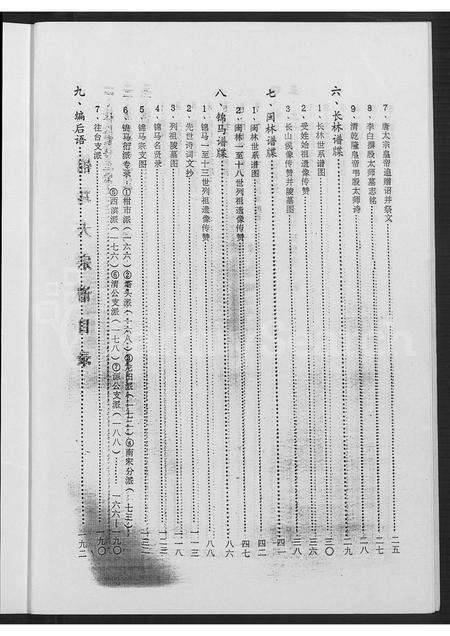 7、唐太宗皇帝追赠诏并祭文……二五
8、李白撰殷太师墓志铭……二七
9、清乾隆皇帝弔殷太师诗……二八
六、长林谱牒……二九
1、长林世系谱图……三〇
2、受姓始祖遗像传赞……三六
3、长山祝像传赞并陵墓图……三八
七、闽林谱牒……四一
1、闽林世系谱图……四二
2、闽林一至十八世列祖遗像传赞……四七
八、锦马谱牒……八六
1、锦马一至十三世列祖遗像传赞……八八
2、先世诗词文抄……一一三
3、列祖陵墓图……一一八
4、锦马名贤录……一二三
5、锦马宗支图……一三二
6、锦马衍派专录：①柑市派（一六六）②
⑤西滨派（一七六）⑥清公支派（一七八）⑦派公支派（一八八）……一六六—一九〇
7、往台支派……一九〇
九、编后语……一九二